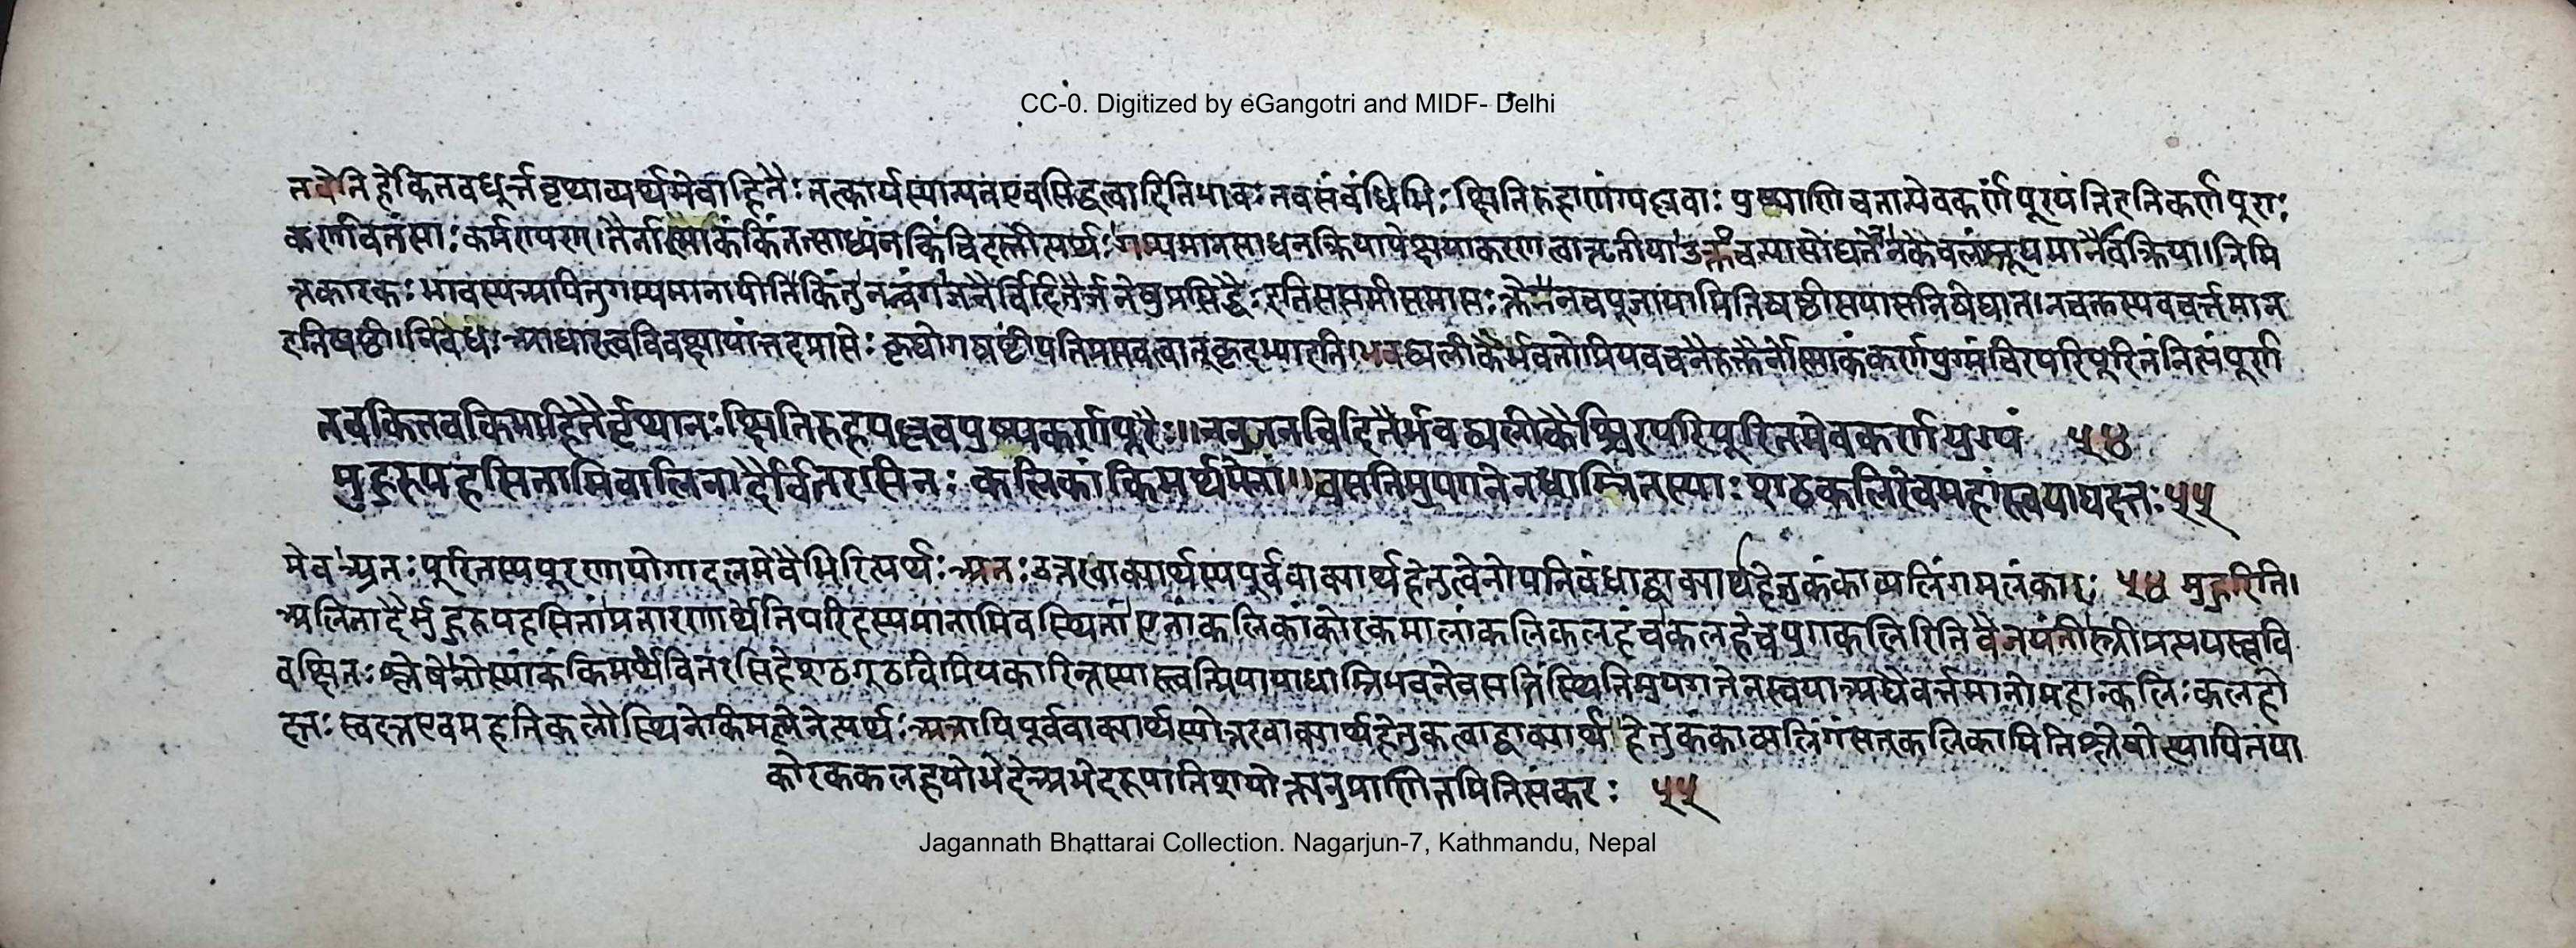 CC-0. Digitized by eGangotri and MIDF- Delhi
तवेति हेकितवधूर्त्तवृथाव्यर्थमेवाहितैः तत्कार्यस्यान्यतएवसिद्धत्वादितिभावः तवसंबंधिभिः क्षितिरुहाणांपल्लवाः पुष्पाणिचतान्येवकर्णपूरयंतिइतिकर्णपूराः
कर्णावतंसाः कर्मण्यण् तैर्नोस्माकंकिंतत्साध्यंनकिंचिदस्तीत्यर्थः गम्यमानसाधनक्रियापेक्षयाकरणत्वात्तृतीया उक्तंचन्यासोद्योते नकेवलंश्रूयमाणैवक्रिया निमि
त्तंकारकभावस्यअपितुगम्यमानापीतिकिंतु ननुअंगजनैर्विदितैर्जनेषुप्रसिद्धैः इतिसप्तमीसमासः क्तेनचपूजायामितिषष्ठीसमासनिषेधात् नचक्तस्यचवर्त्तमान
इतिषष्ठी निषेधः आधारत्वविवक्षायांतदप्राप्तेः कृद्योगषष्ठीप्रतिप्रसवत्वात् भवद्व्यलीकैर्भवतोप्रियवचनैरुक्तैर्नोस्माकंकर्णयुग्मंचिरपरिपूरितंनित्यंपूर्ण
तवकितवकिमाहितैर्वृथानः क्षितिरुहपल्लवपुष्पकर्णपूरैः॥ ननुजनविदितैर्भवद्व्यलीकैश्चिरपरिपूरितमेवकर्णयुग्मं ५४
मुहुरुपहसितामिवालिनादैर्वितरसिनः कलिकांकिमर्थमेनां॥ वसतिमुपगतेनधाम्नितस्याः शठकलिरेवमहांस्त्वयाद्यदत्तः ५५
मेव अतः पूरितस्यपूरणायोगादलमेवैभिरित्यर्थः अत्रउत्तरवाक्यार्थस्यपूर्ववाक्यार्थहेतुत्वेनोपनिबंधाद्वाक्यार्थहेतुकंकाव्यलिंगमलंकारः ५४ मुहुरिति।
अलिनादैर्मुहुरुपहसितांप्रतारणार्थेतिपरिहस्यमानामिवस्थितां एनांकलिकांकोरकमालांकलिकलहंच कलहेचयुगेकलिरितिवैजयंती स्त्रीप्रत्ययस्त्ववि
वक्षितः श्लेषेनोस्माकंकिमर्थंवितरसिहेशठगूढविप्रियकारिन्तस्यास्त्वत्प्रियायाधाम्निभवनेवसतिंस्थितिमुपगतेनत्वयाअद्यैवर्त्तमानोमहान्कलिः कलहो
दत्तः त्वदत्तएवमहतिकलौस्थितेकिमन्येनेत्यर्थः अत्रापिपूर्ववाक्यार्थस्योत्तरवाक्यार्थहेतुकत्वाद्वाक्यार्थहेतुकंकाव्यलिंगंसतकलिकामितिश्लेषोत्थापितया
कोरककलहयोर्भेदेअभेदरूपातिशयोक्त्यनुप्राणितमितिसंकरः ५५
Jagannath Bhattarai Collection. Nagarjun-7, Kathmandu, Nepal